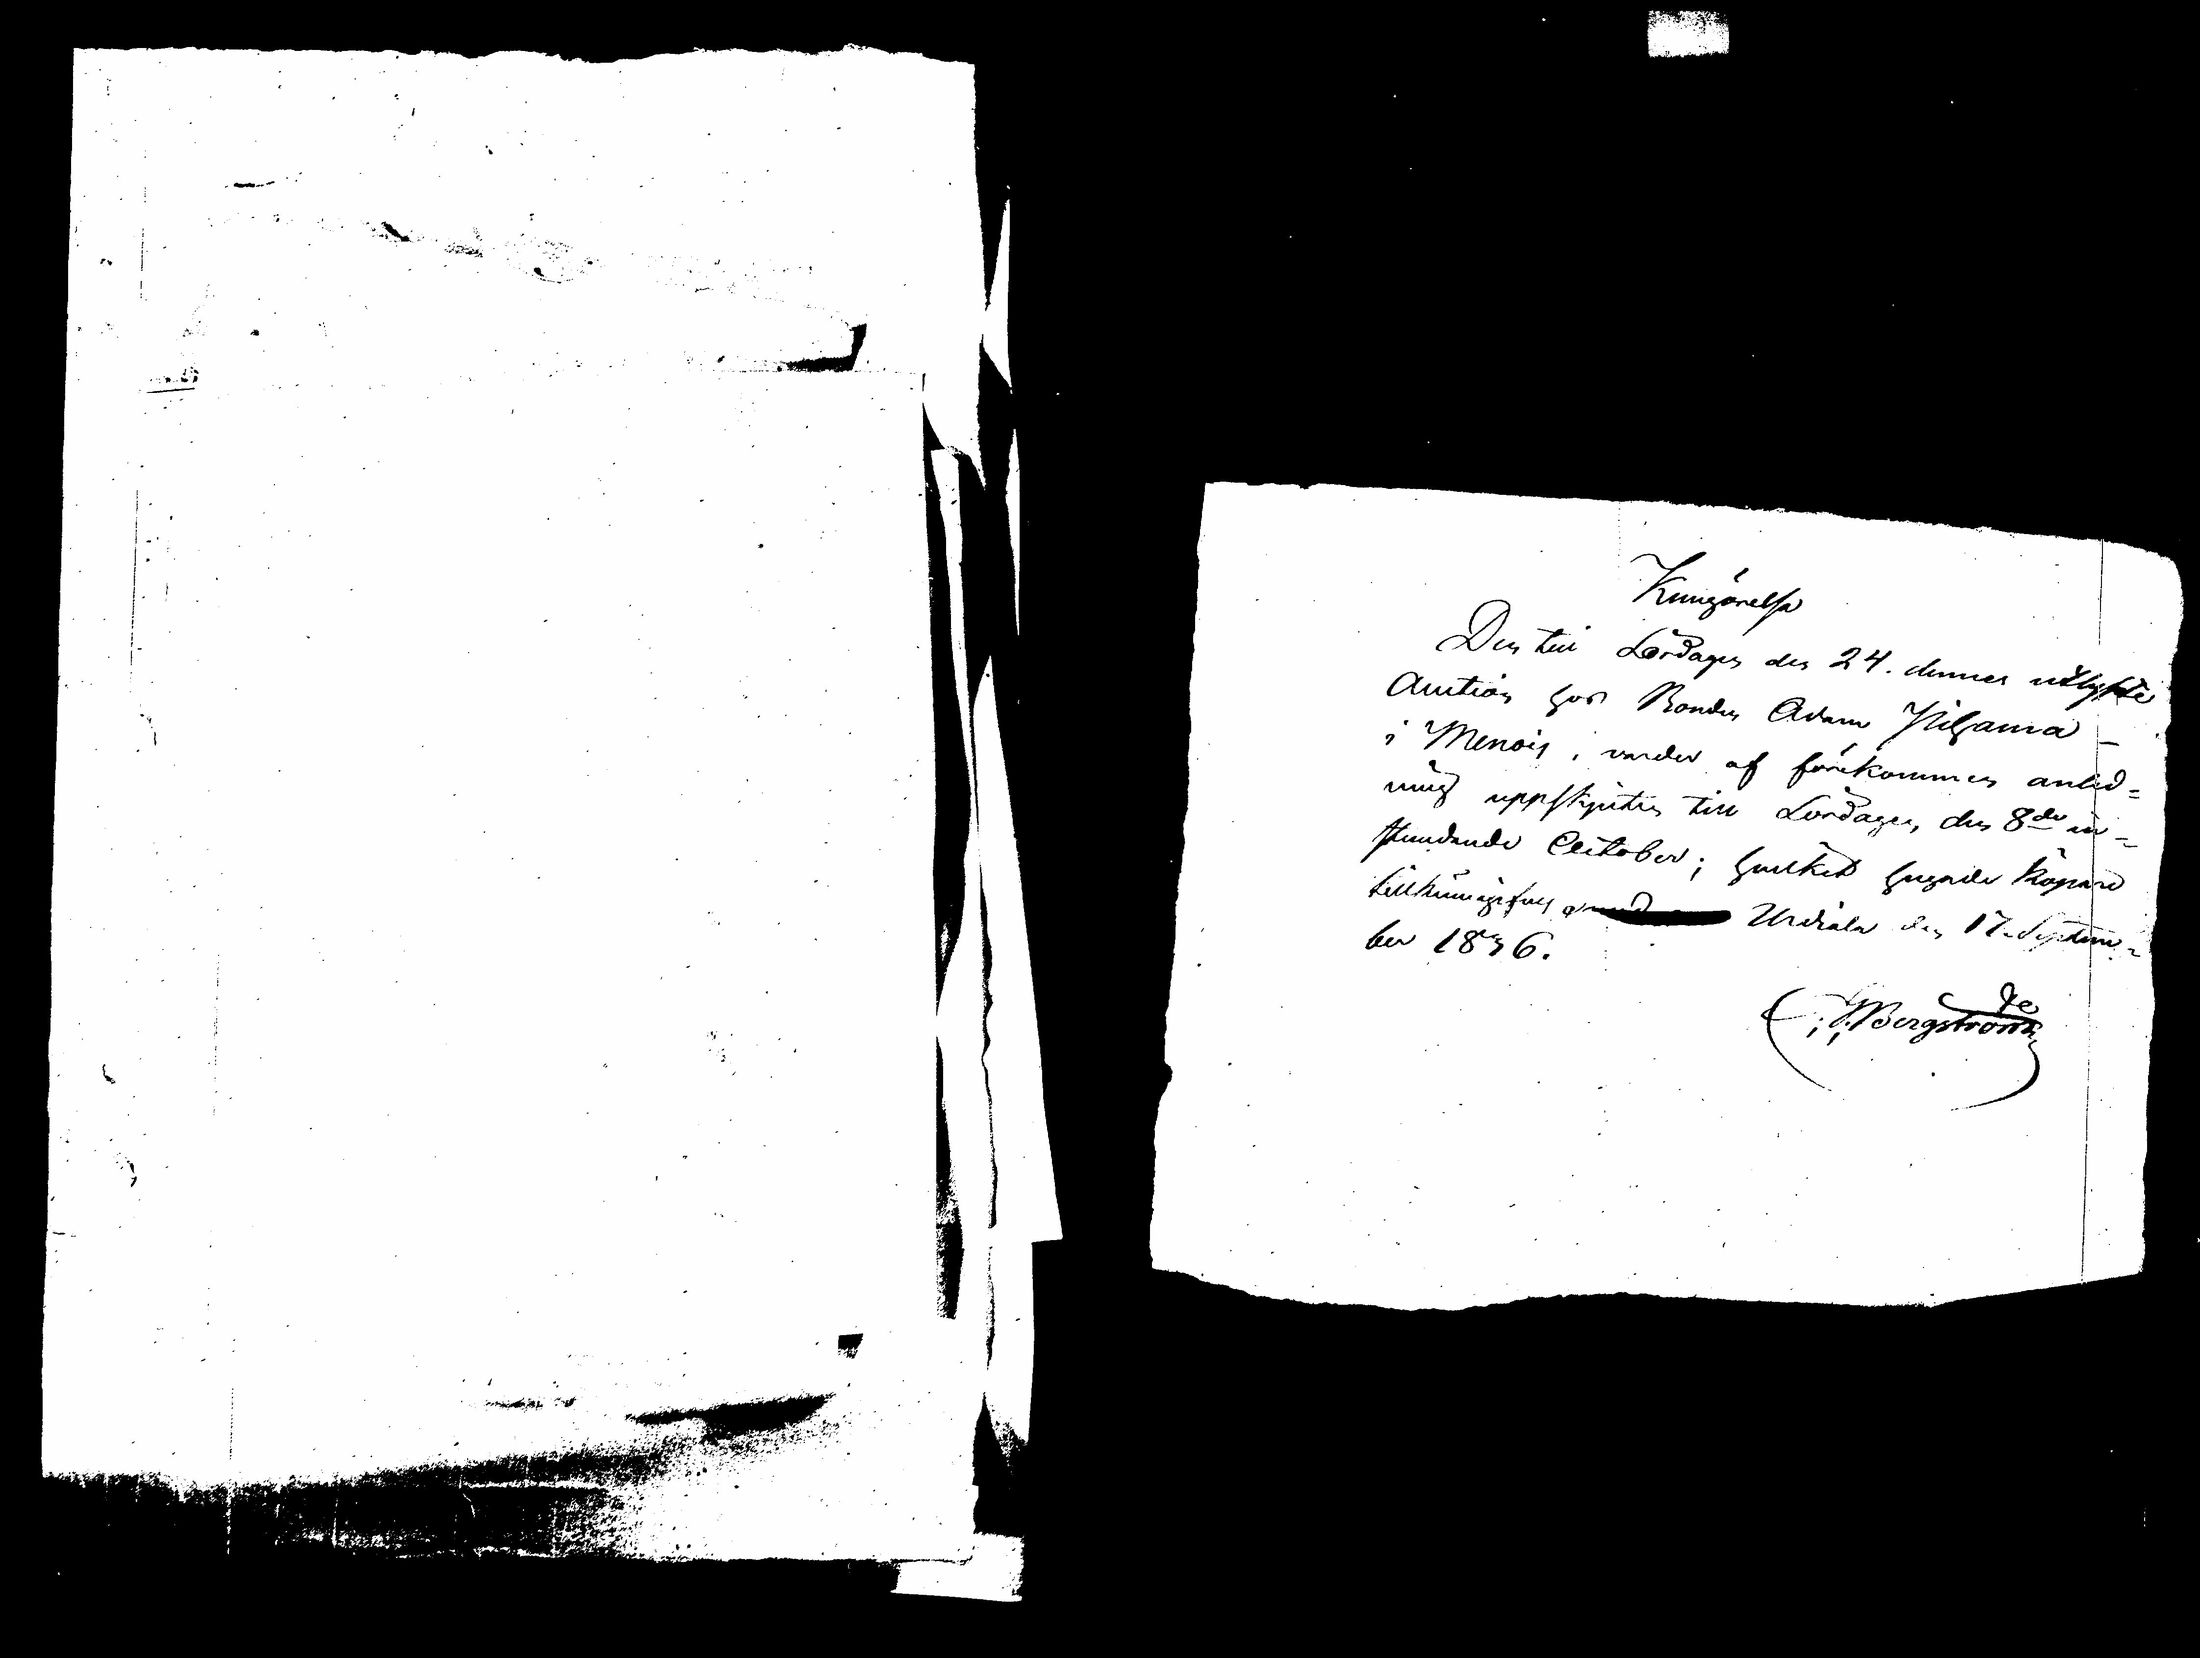 Kungörelse
Den till Lördagen den 24. dennes utlyste
Auction hos Bonden Adam Yiljama
i Menois, varder af förekommen anled=
ning uppskjuten till Lördagen, den 8de in=
stundande October; hvilket hugade Köpare
tillkännagifves Urdiala den 17. Septem=
ber 1836.
Bergström